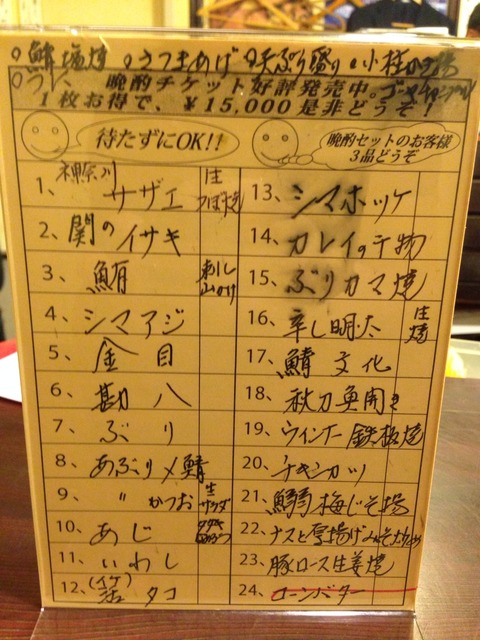 ○鮪塩焼 ○さつまあげ ○天ぷら盛り ○小柱かき揚
晩酌チケット好評発売中。
1枚お得で、¥15,000是非どうぞ！
待たずにOK!!
晩酌セットのお客様
3品どうぞ
1、神奈川 サザエ 生 つぼ焼
2、関のイサキ
3、鮪 刺し 山かけ
4、シマアジ
5、金目
6、勘八
7、ぶり
8、あぶり〆鯖
9、〃 かつお 生 サラダ
10、あじ タタキ
11、いわし
12、(イケ)活タコ
13、シマホッケ
14、カレイの干物
15、ぶりカマ焼
16、辛し明太 生 焼
17、鯖文化
18、秋刀魚開き
19、ウインナー鉄板焼
20、チキンカツ
21、鯛梅じそ揚
22、ナスと厚揚げみそ炒め
23、豚ロース生姜焼
24、コーンバター